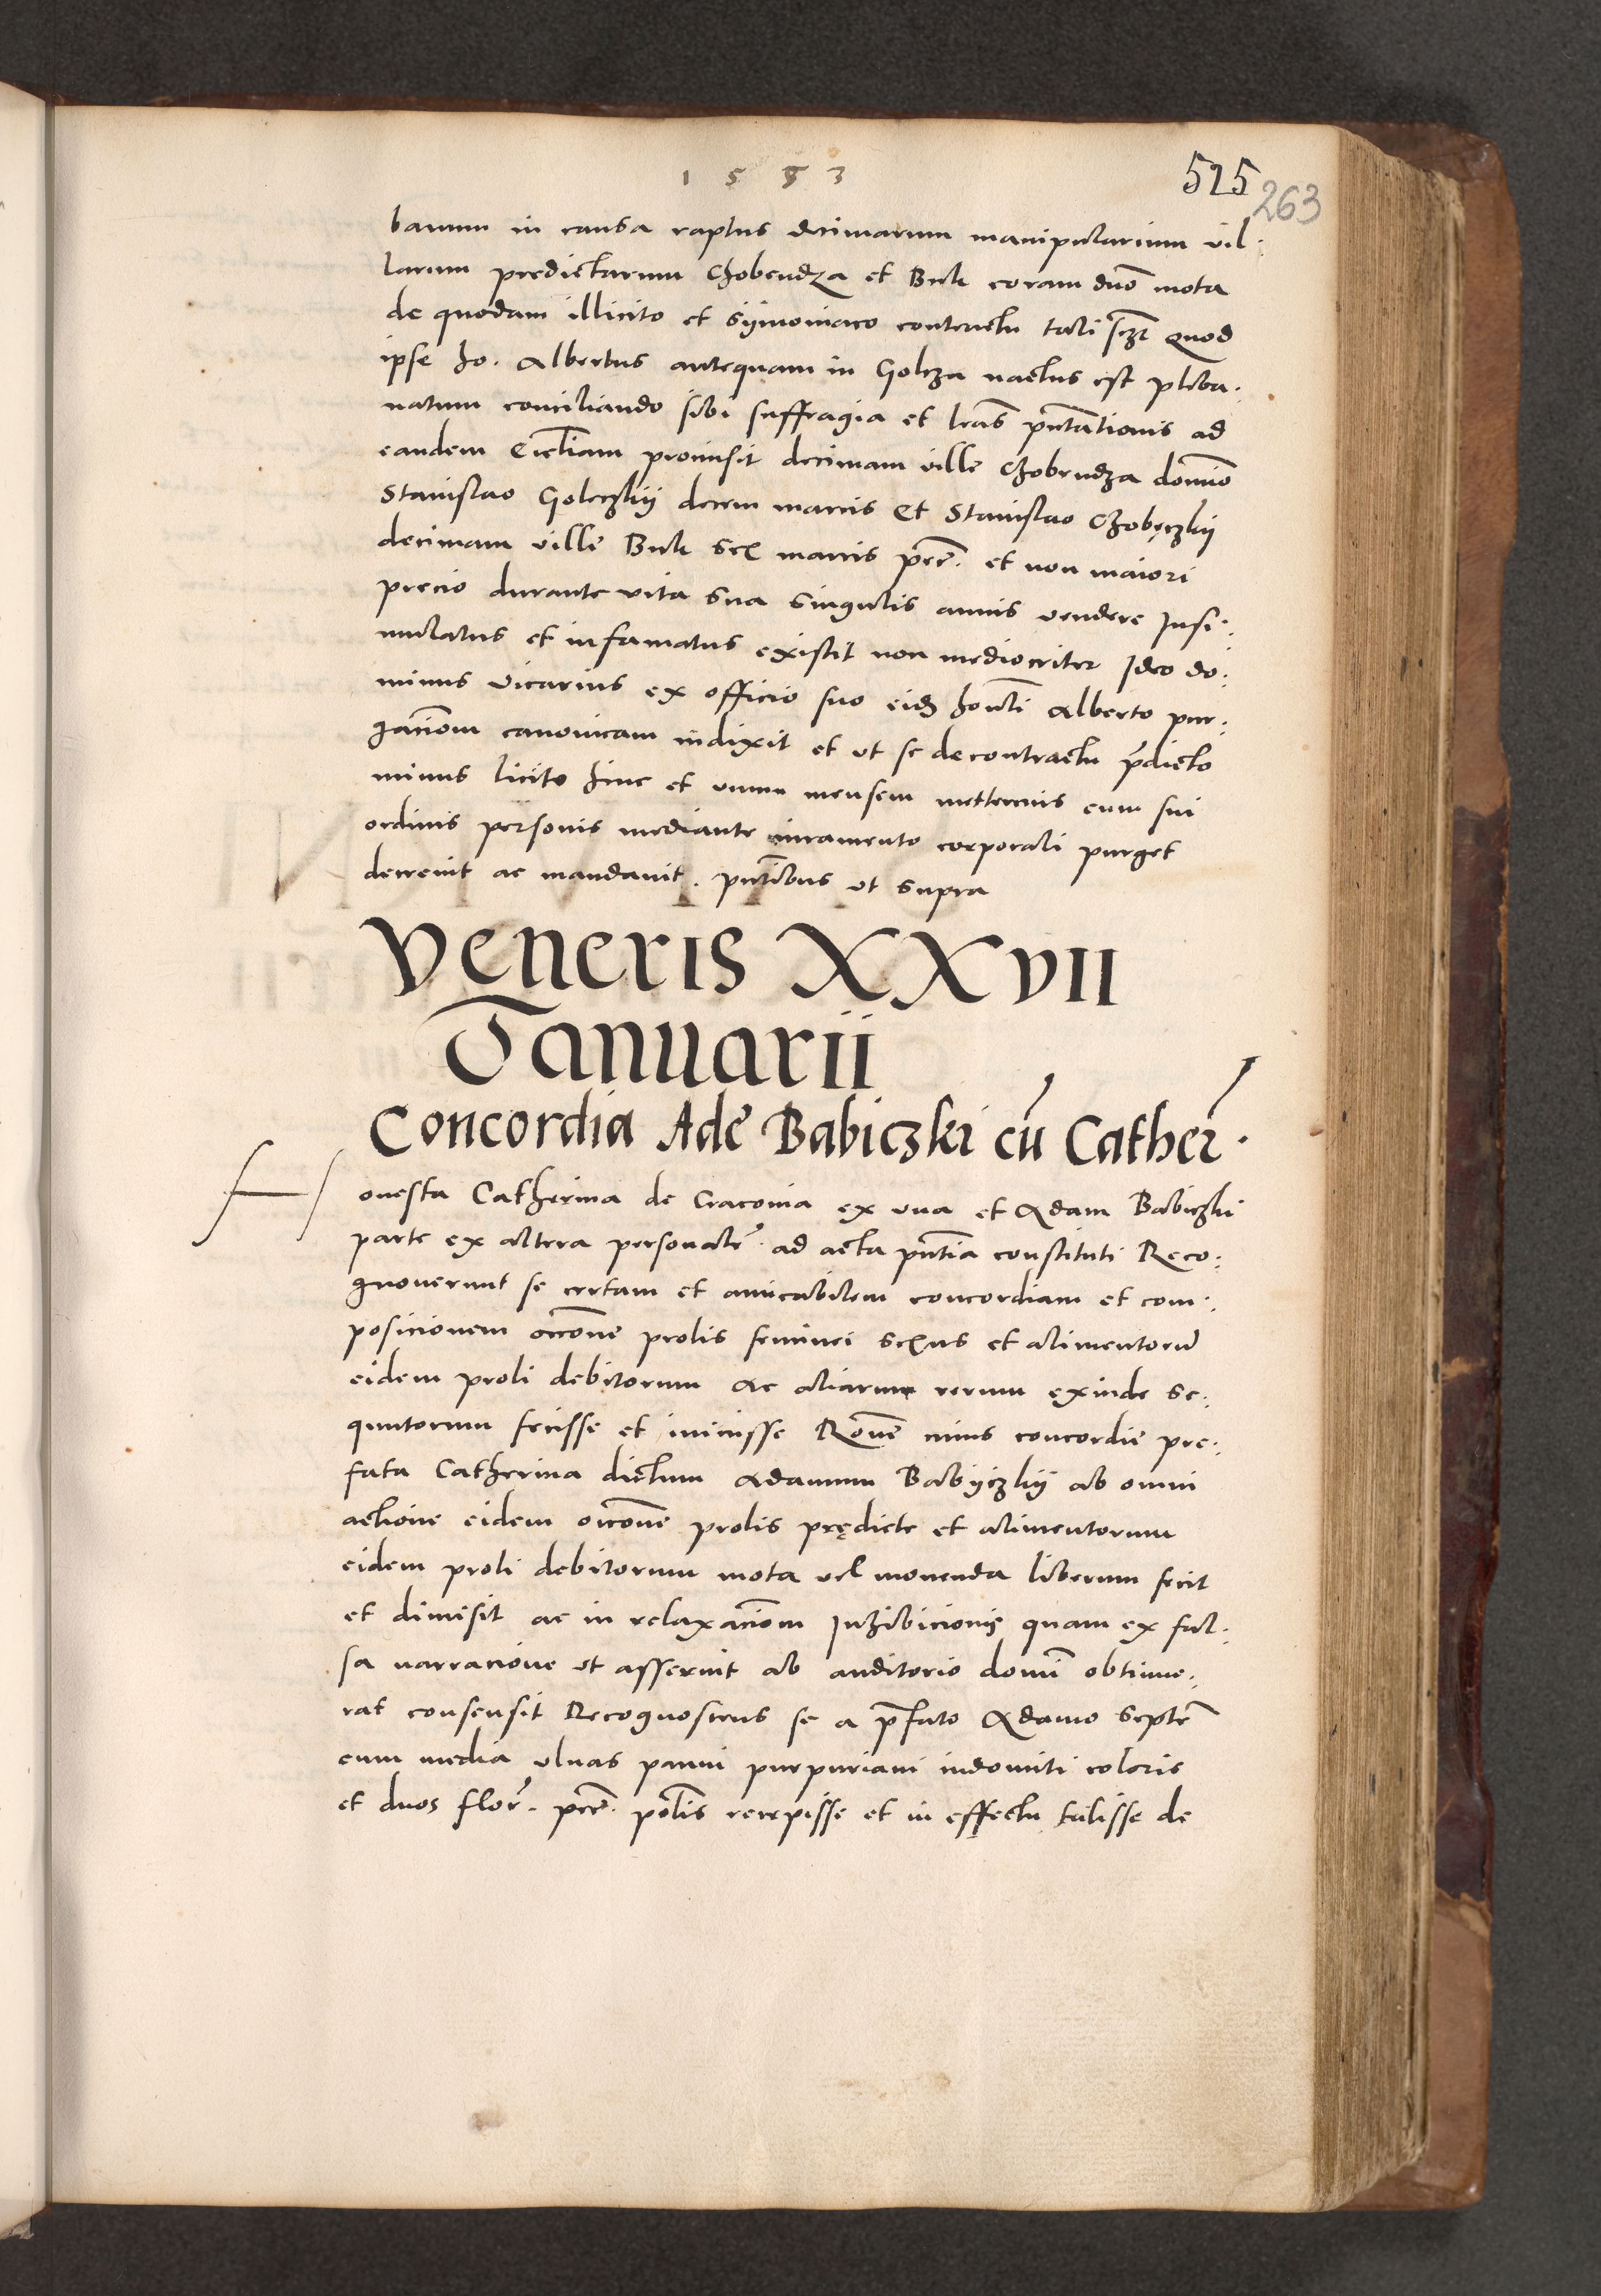 1553
525
263
banum in causa raptus decimarum manipularium vil:
larum predictarum Chobendza et Buk coram dno mota
de quodam illicito et symoniaco contractu tali sczt Quod
ipse ho. Albertus antequam in Golcza nactus est pleba:
natum conciliando sibi suffragia et lras pntationis ad
eandem Ecctiam promisit decimam ville Chobendza domio
Stanislao Goleczkij decem marcis Et Stanislao Chobęczkij
decimam ville Buk sex marcis pece. et non maiori
precio durante vita sua singulis annis vendere Insi:
mulatus et infamatus existit non mediocriter Ideo do:
minus vicarius ex officio suo eidz honti Alberto pur:
gaciom canonicam indixit et vt se de contractu pdicto
minus licito hinc et vnum mensem mettercius cum sui
ordinis personis mediante iuramento corporali purget
decrevit ac mandavit. pntibus vt supra
Veneris XXVII
Ianuarii
Concordia Ade Babiczki cu Cather.
Honesta Catherina de Cracovia ex vna et Adam Babiczki
parte ex altera personalr ad acta pntia constituti Reco:
gnoverunt se certam et amicabilem concordiam et com:
posicionem occone prolis feminei sexus et alimentoru
eidem proli debitorum ac aliarum rerum exinde se:
quutorum fecisse et inivisse Rone cuius concordie pre:
fata Catherina dictum Adamum Babyczkij ab omni
actione eidem occone prolis prędicte et alimentorum
eidem proli debitorum mota vel movenda liberum fecit
et dimisit ac in relaxaciom Inhibicionis quam ex fal:
sa narracione vt asseruit ab auditorio domi obtinue:
rat consensit Recognoscens se a pfato Adamo septe
cum media vlnas panni purpuriani indomiti coloris
et duos flor. pece. poltis recepisse et in effectu tulisse de